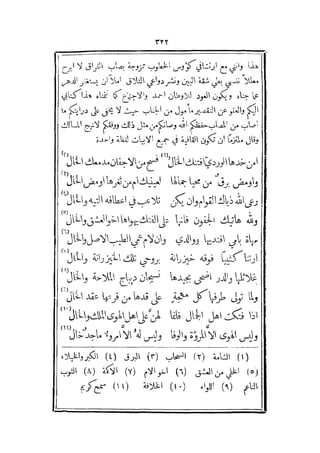 ٣٢٢
هذا وانني مع ارتشافي كؤوس الخطوب ممزوجة بصاب الفراق لا ابرح
معللاً نفسي بطي شقة البين ونشر دواعي التلاق املاً ان يستغفر الدهر
عما جناه ويكون العود للاوطان احمد والاجتماع كما نتمناه هذا كتابي
اليكم والعفو عن التقصير مأمول من الجناب حيث لا يخفى على درايتكم ما
اصاب من المصاب حفظكم الله وصانكم من مثل ذلك ووفقكم لانهج المسالك
وقال ملتزماً ان تكون القافية في جميع الابيات لفظة واحدة
امن خدها الوردي افتنك الخال (١) فسح من الاجفان مدمعك الخال (٢)
واومض برق من محيا جمالها لعينيك ام من ثغرها اومض الخال (٣)
رعى الله ذياك القوام وان يكن تلاعب في اعطافه التيه والخال (٤)
ولله هاتيك الجفون فانها على الفتك يهواها اخو العشق والخال (٥)
مهاة بامي افتديها ووالدي وان لام عمي الطيب الاصل والخال (٦)
ارتنا كثيباً فوقه خيزرانة بروحي تلك الخيزرانة والخال (٧)
غلائلها والدر اضحى بجيدها نسيجان ديباج الملاحة والخال (٨)
ولما تولى طرفها كل مهجة على قدها من فرعها عقد الخال (٩)
اذا فتكت اهل الجمال فانما لهن على اهل الهوى الملك والخال (١٠)
وليس الهوى الا المروءة والوفا وليس له الا امرؤ ماجد خال (١١)
(١) الشامة (٢) السحاب (٣) البرق (٤) الكبر والخيلاء
(٥) الخلي من العشق (٦) اخو الام (٧) الاكمة (٨) الثوب
الناعم (٩) اللواء (١٠) الخلافة (١١) سمح كريم